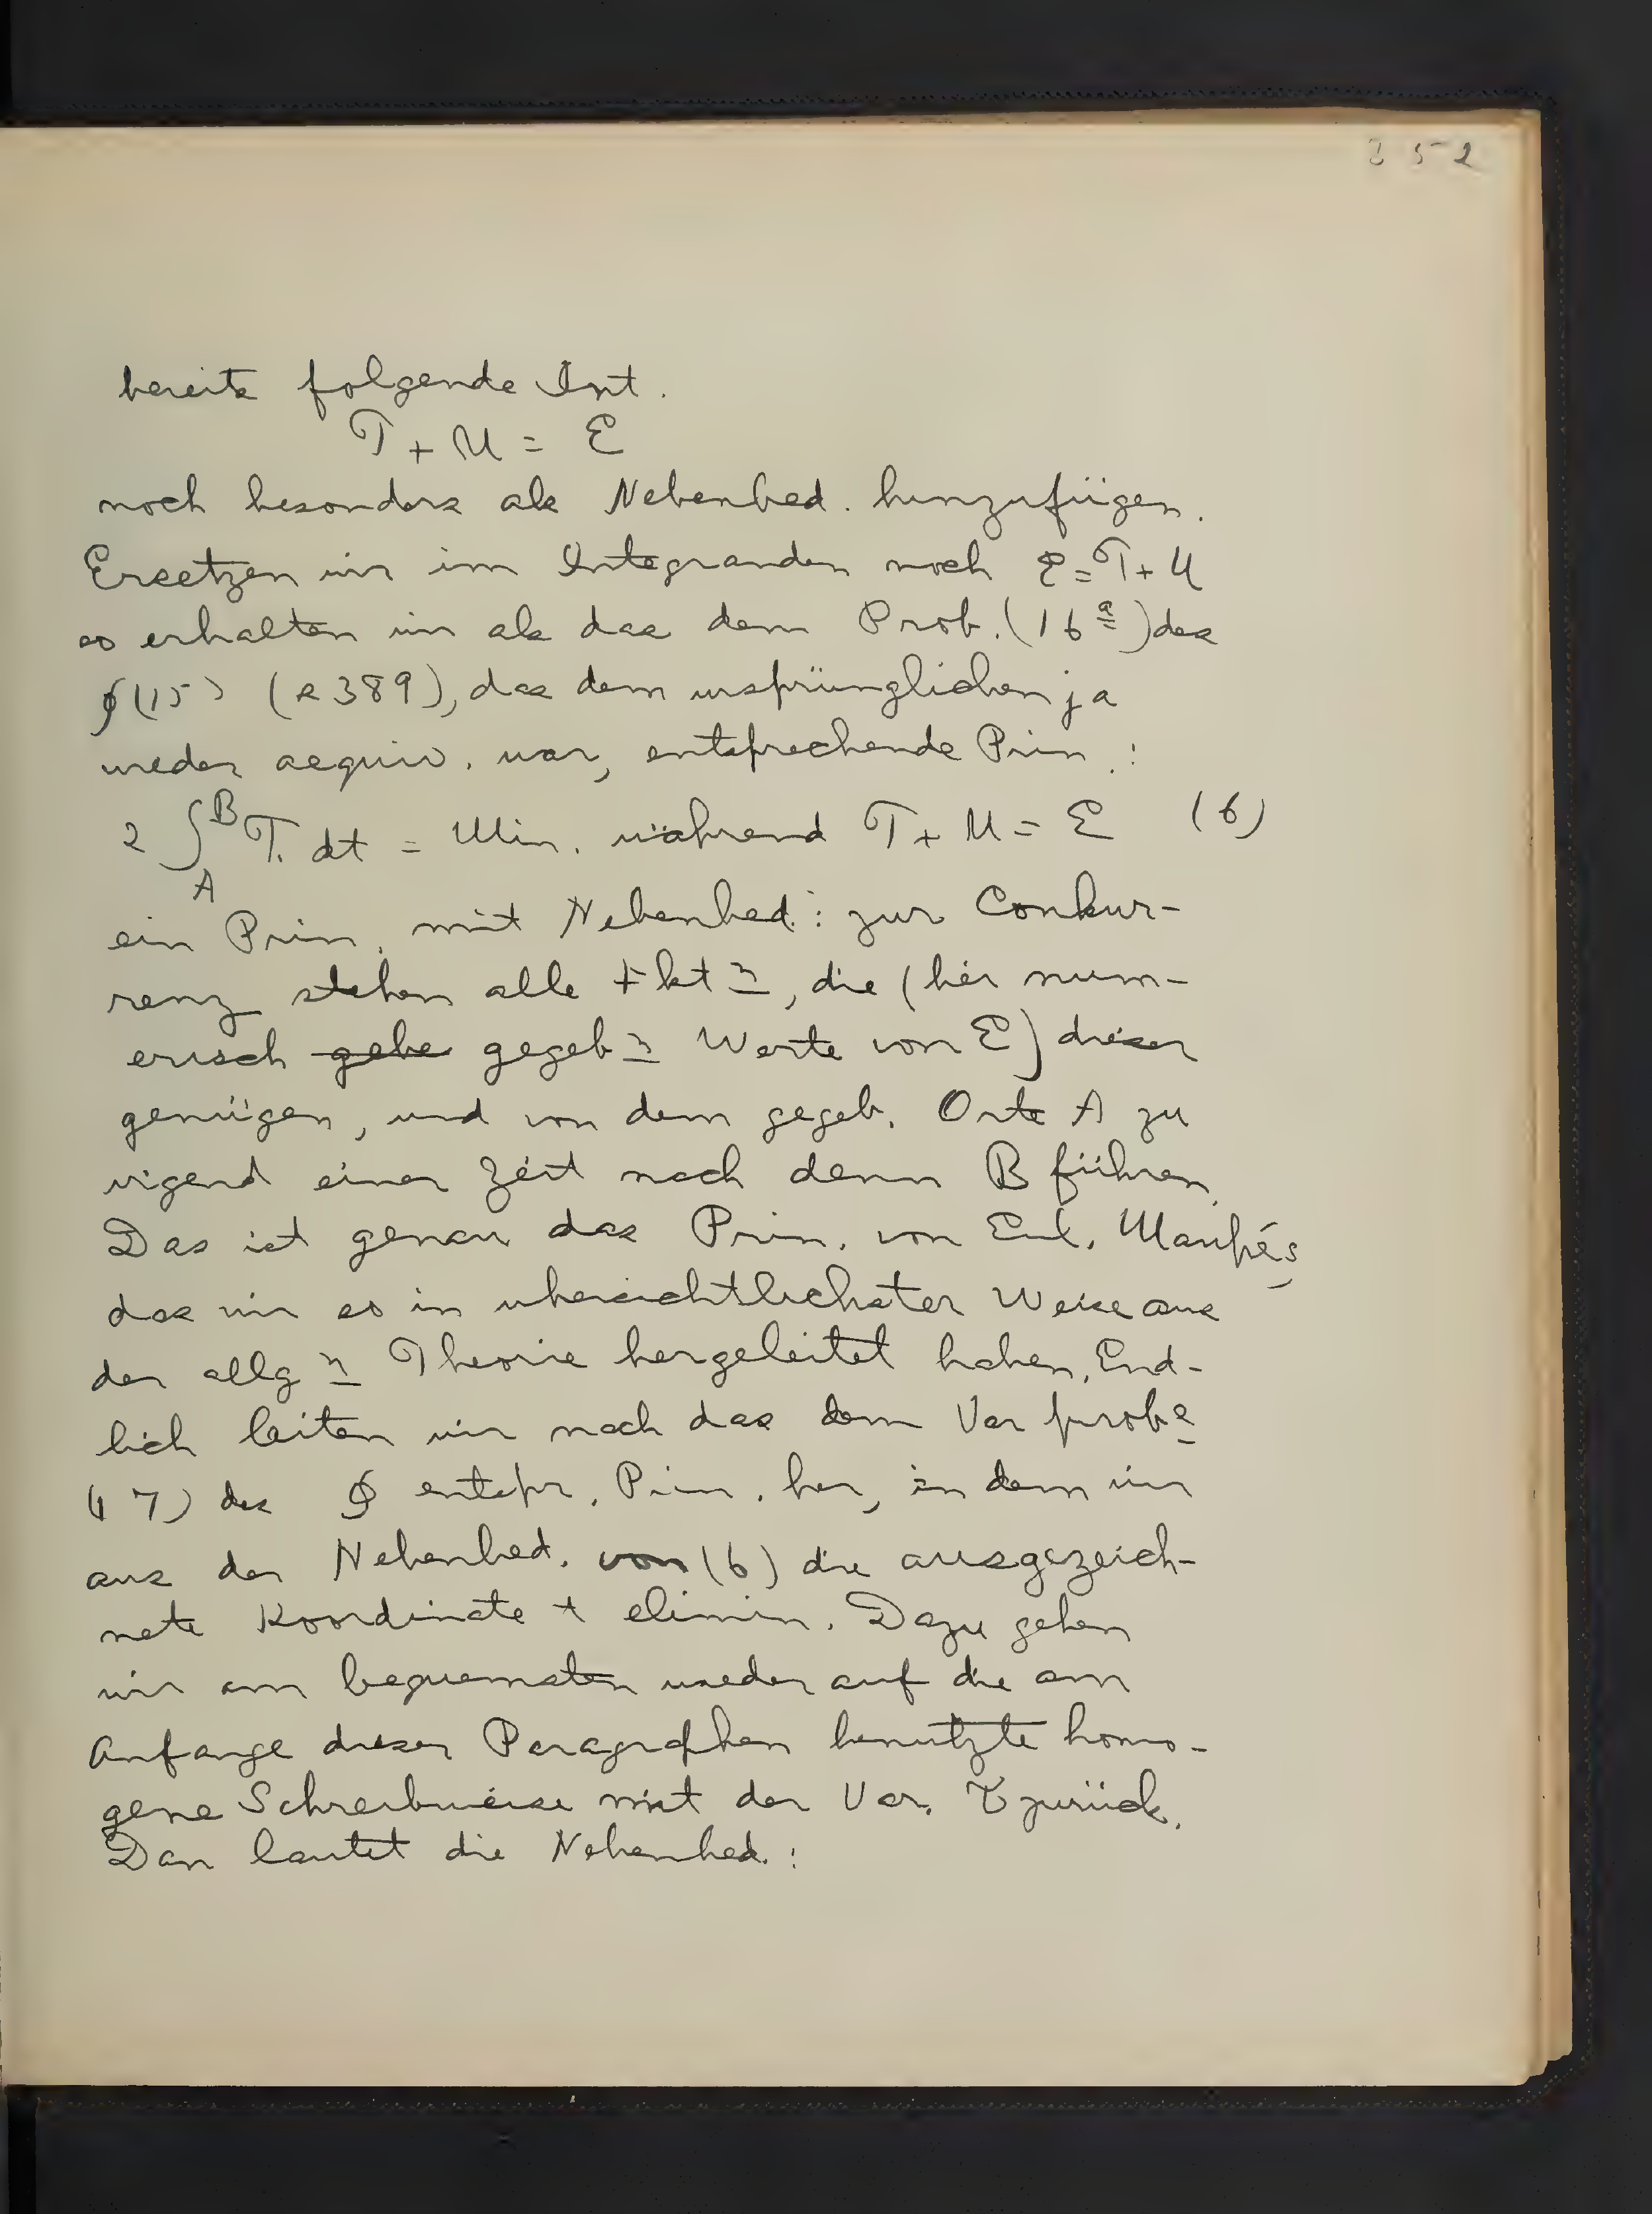 252
bereits folgende Int.
T + U = E
noch besonders als Nebenbed. hinzufügen.
Ersetzen wir im Integranden noch E = T + U
so erhalten wir als das dem Prob. (16a) des
§(15) (s 389), das dem ursprünglichen ja
wieder aequiv. war, entsprechende Prin.:
2 ∫_A^B T. dt = Min. während T + U = E (6)
ein Prin. mit Nebenbed.: zur Conkur-
renz stehen alle Fktn, die (bei num-
erisch ~~gebe~~ gegebn Werte von E) dieser
genügen, und von dem gegeb. Orte A zu
irgend einer Zeit nach denn B führen.
Das ist genau das Prin. von Eul. Maupés
das wir so in übersichtlichster Weise aus
der allgn Theorie hergeleitet haben. End-
lich leiten wir noch das dem Var probe
(17) des § entspr. Prin. her, in dem wir
aus der Nebenbed. von (6) die ausgezeich-
nete Koordinate t elimin. Dazu gehen
wir am bequemsten wieder auf die am
Anfange dieser Paragraphen benutzte homo-
gene Schreibweise mit der Var. τ zurück.
Dan lautet die Nebenbed.: